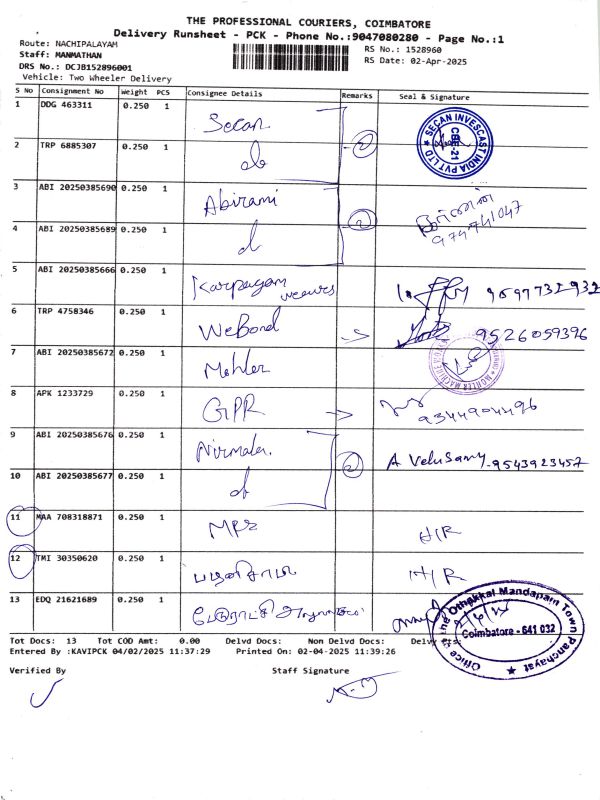 THE PROFESSIONAL COURIERS, COIMBATORE
Delivery Runsheet - PCK - Phone No.:9047080280 - Page No.:1
Route: NACHIPALAYAM
RS No.: 1528960
Staff: MANMATHAN
RS Date: 02-Apr-2025
DRS No.: DCJB152896001
Vehicle: Two Wheeler Delivery
S No Consignment No Weight PCS Consignee Details Remarks Seal & Signature
1 DDG 463311 0.250 1 Secan
SECAN INVESCAST INDIA PVT LTD CBE-21
2 TRP 6885307 0.250 1 do
3 ABI 20250385690 0.250 1 Abirami
4 ABI 20250385689 0.250 1 d
5 ABI 20250385666 0.250 1 Karpagam weavers
6 TRP 4758346 0.250 1 WeBond 9526059396
7 ABI 20250385672 0.250 1 Mohler
8 APK 1233729 0.250 1 GPR 9344904496
9 ABI 20250385676 0.250 1 Nirmala A Velusamy - 9543923457
10 ABI 20250385677 0.250 1 do
11 MAA 708318871 0.250 1 H/R
12 TMI 30350620 0.250 1 பழனிசாமி H/R
13 EDQ 21621689 0.250 1
Office Othakkal Mandapam Town Panchayat
Coimbatore - 641 032
Tot Docs: 13 Tot COD Amt: 0.00 Delvd Docs: Non Delvd Docs:
Entered By :KAVIPCK 04/02/2025 11:37:29 Printed On: 02-04-2025 11:39:26
Verified By Staff Signature